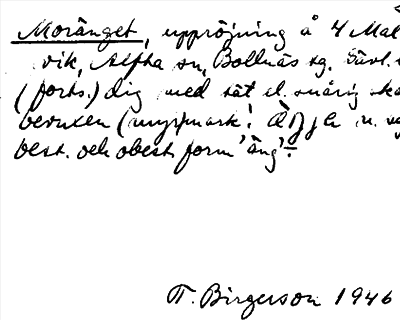 Moränget, uppröjning å 4 Mal
vik, Alfta sn, Bollnäs tg. Gävl.
(forts.) dig med tät el. snårig ska
bevuxen (myr)mark. n. sg.
best. och obest. form 'äng'.
T. Birgerson 1946